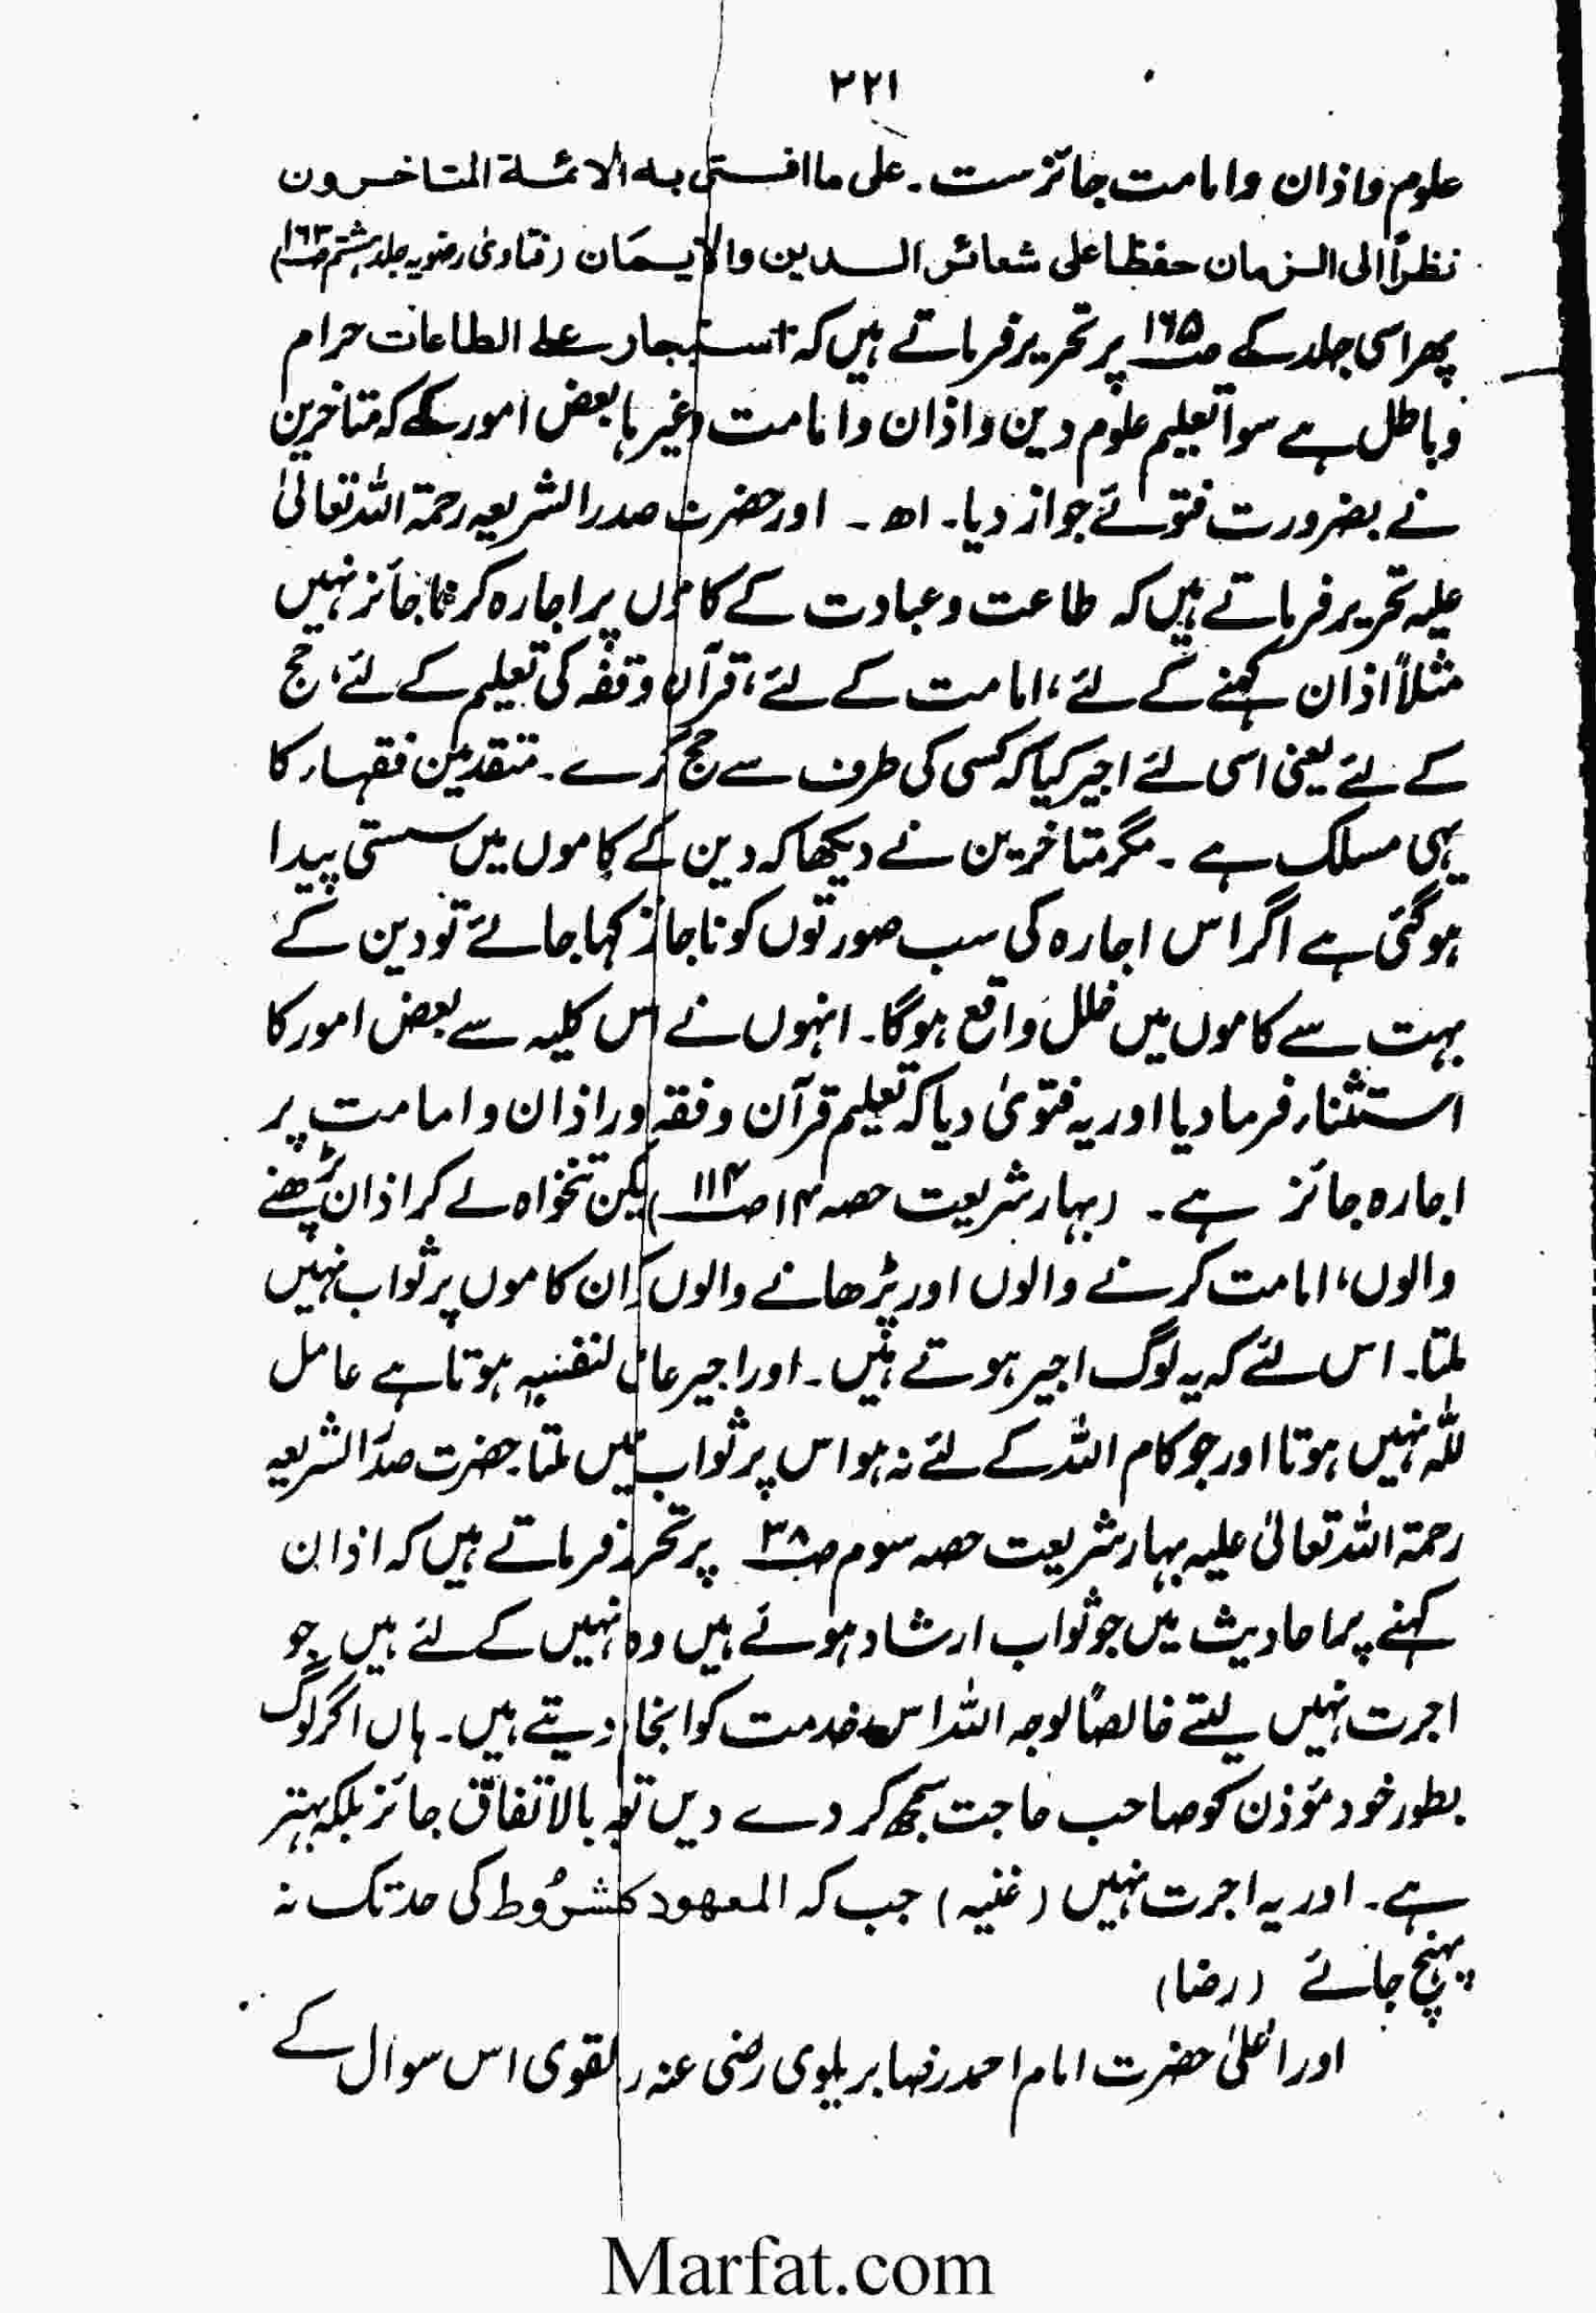 ۲۲۱
علوم واذان وامامت جائزست۔ علی ما افتی بہ الائمۃ المتاخرون
نظراً الی الزمان حفظا علی شعائر الدین والایمان (فتاویٰ رضویہ جلد ہشتم ص۱۶۳)
پھر اسی جلد کے ص۱۶۵ پر تحریر فرماتے ہیں کہ استیجار علی الطاعات حرام
وباطل ہے سوا تعلیم علوم دین واذان وامامت وغیرہا بعض امور کے کہ متاخرین
نے بضرورت فتوئے جواز دیا۔ اھ۔ اور حضرت صدر الشریعہ رحمۃ اللہ تعالیٰ
علیہ تحریر فرماتے ہیں کہ طاعت وعبادت کے کاموں پر اجارہ کرنا جائز نہیں
مثلاً اذان کہنے کے لئے، امامت کے لئے، قرآن وفقہ کی تعلیم کے لئے، حج
کے لئے یعنی اسی لئے اجیر کیا کہ کسی کی طرف سے حج کرے۔ متقدمین فقہاء کا
یہی مسلک ہے۔ مگر متاخرین نے دیکھا کہ دین کے کاموں میں سستی پیدا
ہوگئی ہے اگر اس اجارہ کی سب صورتوں کو ناجائز کہا جائے تو دین کے
بہت سے کاموں میں خلل واقع ہوگا۔ انہوں نے اس کلیہ سے بعض امور کا
استثناء فرما دیا اور یہ فتویٰ دیا کہ تعلیم قرآن وفقہ اور اذان وامامت پر
اجارہ جائز ہے۔ (بہار شریعت حصہ ۱۴ ص۱۱۴) لیکن تنخواہ لے کر اذان پڑھنے
والوں، امامت کرنے والوں اور پڑھانے والوں کو ان کاموں پر ثواب نہیں
ملتا۔ اس لئے کہ یہ لوگ اجیر ہوتے ہیں۔ اور اجیر عامل لنفسہ ہوتا ہے عامل
للہ نہیں ہوتا اور جو کام اللہ کے لئے نہ ہو اس پر ثواب نہیں ملتا حضرت صدر الشریعہ
رحمۃ اللہ تعالیٰ علیہ بہار شریعت حصہ سوم ص۳۸ پر تحریر فرماتے ہیں کہ اذان
کہنے پر احادیث میں جو ثواب ارشاد ہوئے ہیں وہ انہیں کے لئے ہیں جو
اجرت نہیں لیتے خالصاً لوجہ اللہ اس خدمت کو انجام دیتے ہیں۔ ہاں اگر لوگ
بطور خود مؤذن کو صاحب حاجت سمجھ کر دے دیں تو یہ بالاتفاق جائز بلکہ بہتر
ہے۔ اور یہ اجرت نہیں (غنیہ) جب کہ المعھود کمشروط کی حد تک نہ
پہنچ جائے (رضا)
اور اعلیٰ حضرت امام احمد رضا بریلوی رضی عنہ ربہ القوی اس سوال کے
Marfat.com